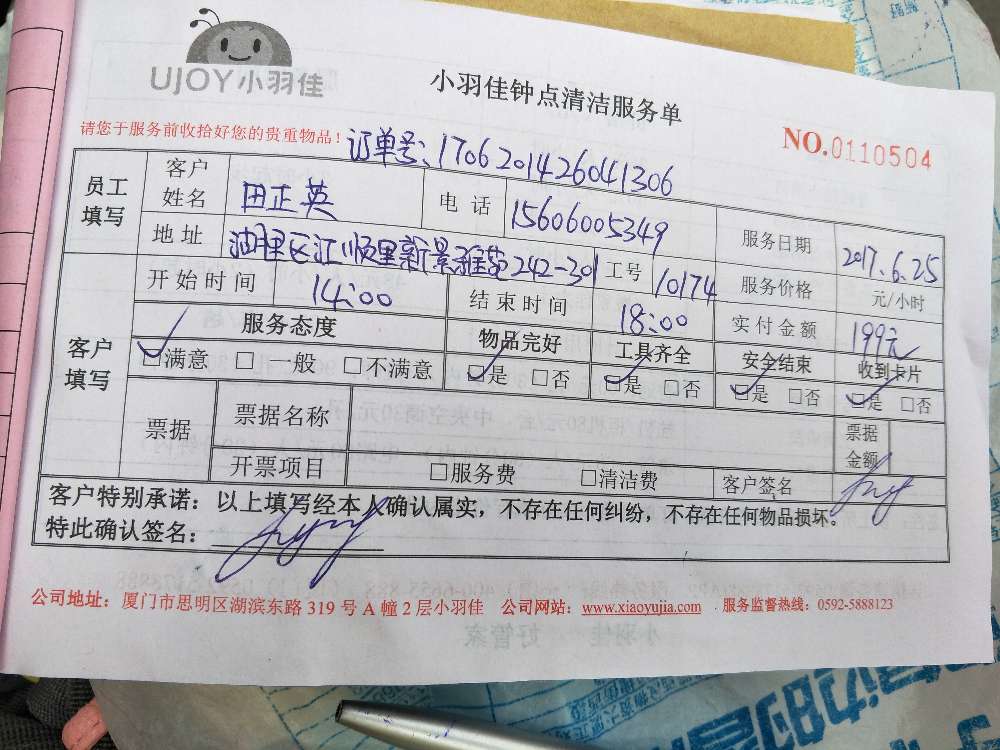 UJOY小羽佳
小羽佳钟点清洁服务单
请您于服务前收拾好您的贵重物品！
订单号：1706201426041306
NO.0110504
员工填写
客户姓名 田正英 电话 15606005349 服务日期 2017.6.25
地址 江顺里新景雅苑242-301 工号 10174 服务价格 元/小时
开始时间 14:00 结束时间 18:00 实付金额 199元
客户填写
服务态度 物品完好 工具齐全 安全结束 收到卡片
☑满意 □一般 □不满意 ☑是 □否 ☑是 □否 ☑是 □否 ☑是 □否
票据 票据名称 票据金额
开票项目 □服务费 □清洁费 客户签名
客户特别承诺：以上填写经本人确认属实，不存在任何纠纷，不存在任何物品损坏。
特此确认签名：
公司地址：厦门市思明区湖滨东路 319 号 A 幢 2 层小羽佳 公司网站：www.xiaoyujia.com 服务监督热线：0592-5888123